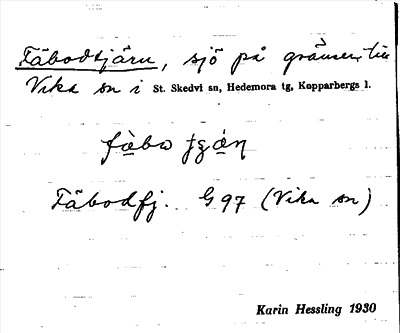 Fäbodtjärn, sjö på gränsen till
Vika sn i St. Skedvi sn, Hedemora tg, Kopparbergs l.
Fäbodtj. G 97 (Vika sn)
Karin Hessling 1930